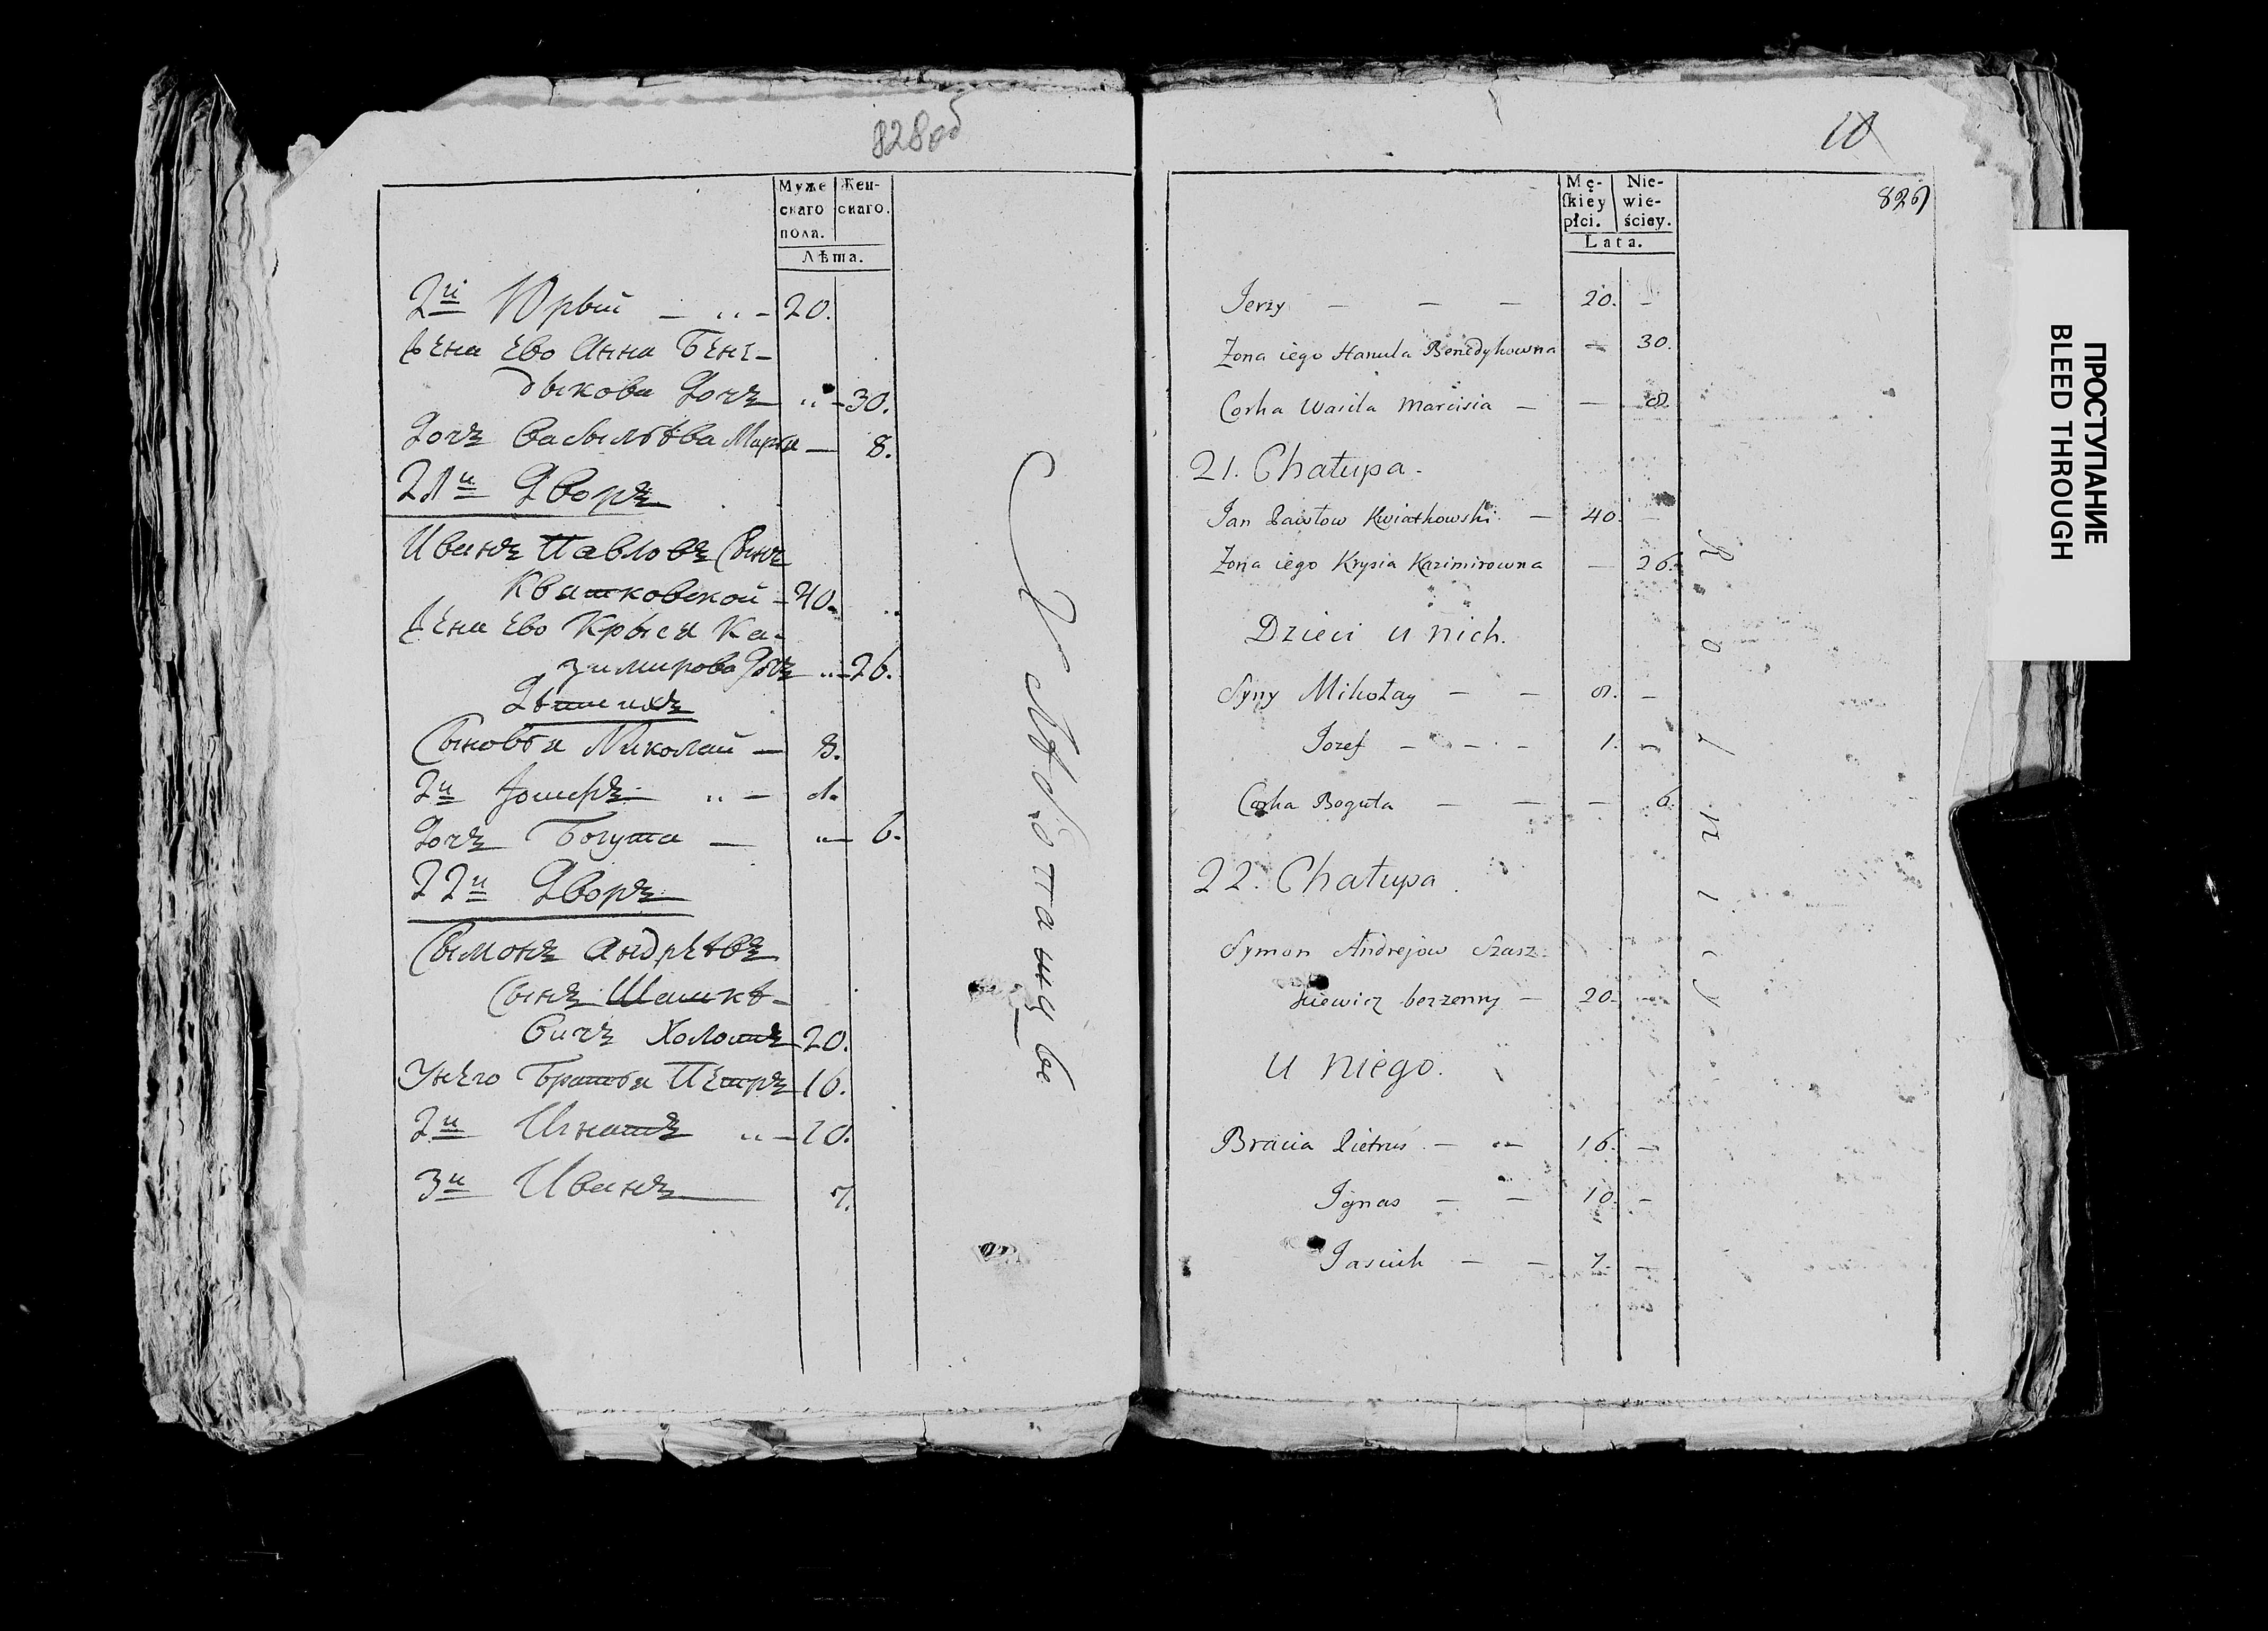 828об
Муже
скаго
пола.
Жен-
скаго.
Лѣта.
2й Юрый — 20.
Жена Ево Анна Бене-
дыкова Дочъ 30.
Дочъ Васылѣва Марыя — 8.
21й Дворъ
Иванъ Павловъ Сынъ
Квятковской — 40.
Жена Ево Крыся Ка-
зимирова Дочъ 26.
Сыновья Николай — 8.
2й — 1.
Дочъ Богута — 6.
22й Дворъ
Сымонъ Андрѣевъ
Сынъ Шашкѣ-
вичъ Холостъ 20.
У Него Братья Пётръ 16.
2й Игнатъ — 10.
3й Иванъ 7.
Хлѣбопашцы
10
829
Mę-
ſkiey
płci.
Nie-
wie-
ściey.
Lata.
Jerzy — — — 20. —
Zona iego Hanula Benedykowna — 30.
Corka Wasila Marcisia — — 8.
21. Chałupa.
Jan Pawłow Kwiatkowski — 40. —
Zona iego Krysia Kazimirowna — 26.
Dzieci u nich.
Syny Mikołay — — 8. —
Jozef — — — 1. —
Corka Boguta — — — 6.
22. Chałupa
Symon Andrejow Szasz-
kiewicz bezzenny — 20. —
u niego.
Bracia Pietruś — — 16. —
Ignas — — 10. —
Jasiuk — — 7. —
Rolnicy.
ПРОСТУПАНИЕ
BLEED THROUGH